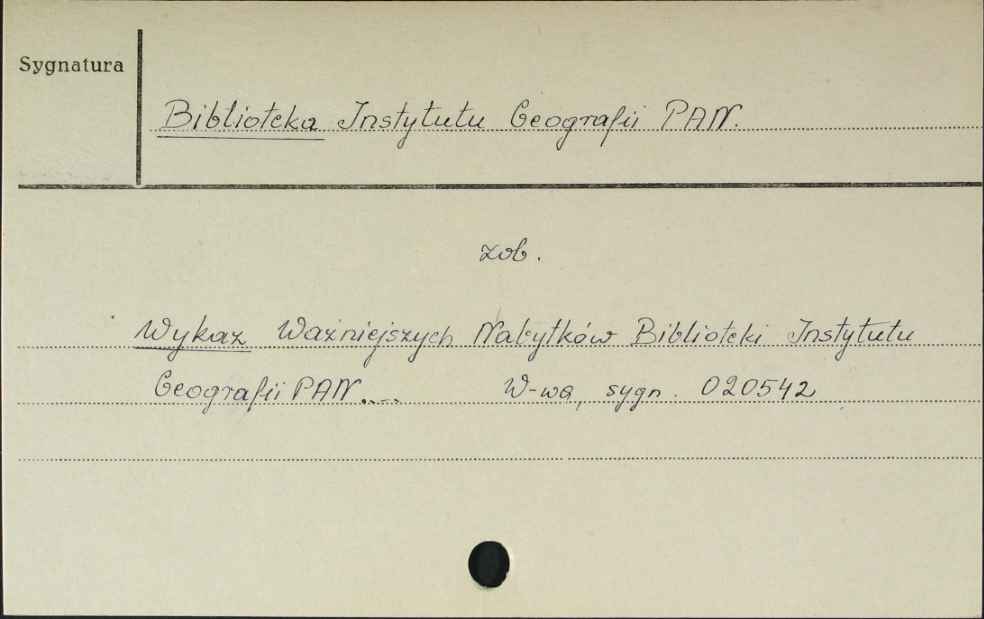 Sygnatura
Biblioteka Instytutu Geografii PAN.
zob.
Wykaz Ważniejszych Nabytków Biblioteki Instytutu
Geografii PAN.... W-wa, sygn. 020542